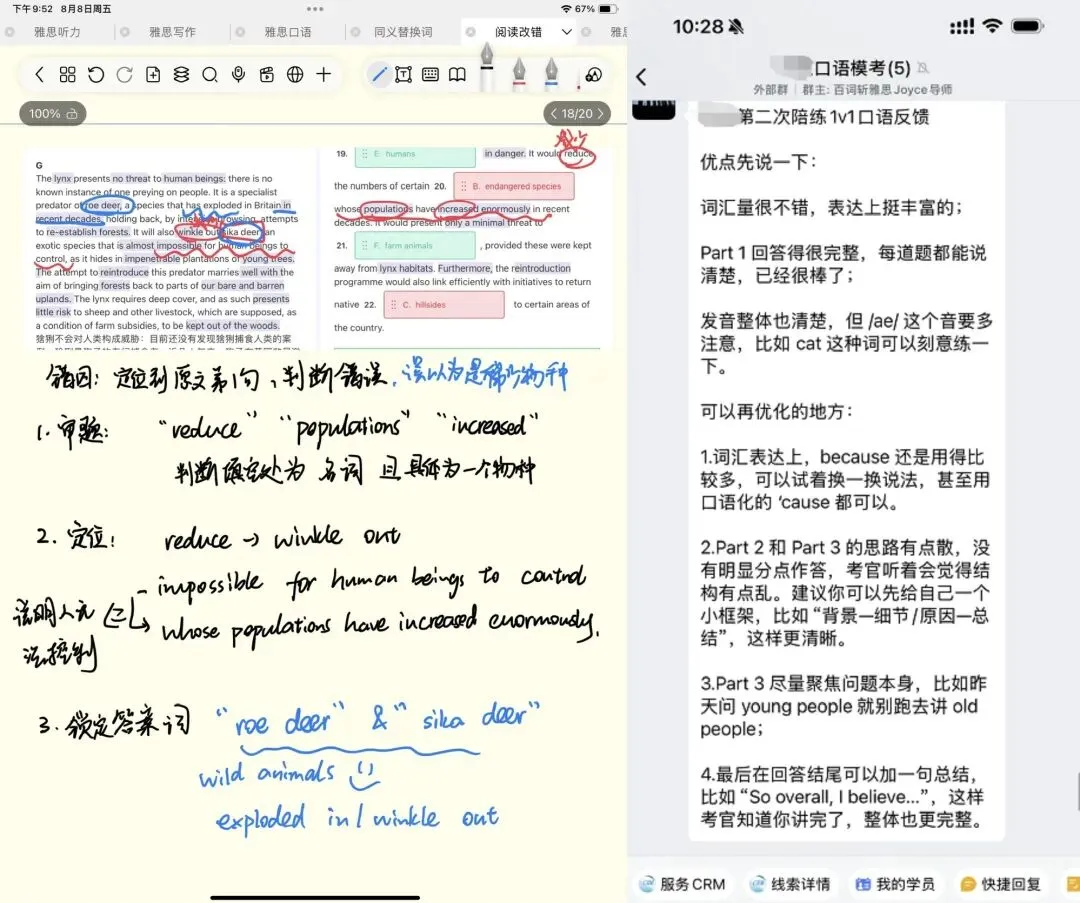 下午9:52 8月8日周五
67%
雅思听力
雅思写作
雅思口语
同义替换词
阅读改错
雅思
100%
18/20
G
The lynx presents no threat to human beings: there is no
known instance of one preying on people. It is a specialist
predator of roe deer, a species that has exploded in Britain in
recent decades, holding back, by intensive browsing, attempts
to re-establish forests. It will also winkle out sika deer: an
exotic species that is almost impossible for human beings to
control, as it hides in impenetrable plantations of young trees.
The attempt to reintroduce this predator marries well with the
aim of bringing forests back to parts of our bare and barren
uplands. The lynx requires deep cover, and as such presents
little risk to sheep and other livestock, which are supposed, as
a condition of farm subsidies, to be kept out of the woods.
猞猁不会对人类构成威胁：目前还没有发现猞猁捕食人类的案
减少
19. E. humans in danger. It would reduce
the numbers of certain 20. B. endangered species
whose populations have increased enormously in recent
decades. It would present only a minimal threat to
21. F. farm animals , provided these were kept
away from lynx habitats. Furthermore, the reintroduction
programme would also link efficiently with initiatives to return
native 22. C. hillsides to certain areas of
the country.
错因：定位到原文第1句，判断错误，误以为是稀少物种
1. 审题： "reduce" "populations" "increased"
判断填空处为 名词 且 具体为一个物种
2. 定位： reduce → winkle out
- impossible for human beings to control
whose populations have increased enormously.
说明人无
法控制
3. 锁定答案词 "roe deer" & "sika deer"
wild animals
exploded in / winkle out
10:28
口语模考(5)
外部群 | 群主: 百词斩雅思Joyce导师
第二次陪练1v1口语反馈
优点先说一下：
词汇量很不错，表达上挺丰富的；
Part 1 回答得很完整，每道题都能说
清楚，已经很棒了；
发音整体也清楚，但 /ae/ 这个音要多
注意，比如 cat 这种词可以刻意练一
下。
可以再优化的地方：
1.词汇表达上，because 还是用得比
较多，可以试着换一换说法，甚至用
口语化的 ‘cause 都可以。
2.Part 2 和 Part 3 的思路有点散，没
有明显分点作答，考官听着会觉得结
构有点乱。建议你可以先给自己一个
小框架，比如“背景—细节/原因—总
结”，这样更清晰。
3.Part 3 尽量聚焦问题本身，比如昨
天问 young people 就别跑去讲 old
people；
4.最后在回答结尾可以加一句总结，
比如“So overall, I believe...”，这样
考官知道你讲完了，整体也更完整。
服务CRM
线索详情
我的学员
快捷回复